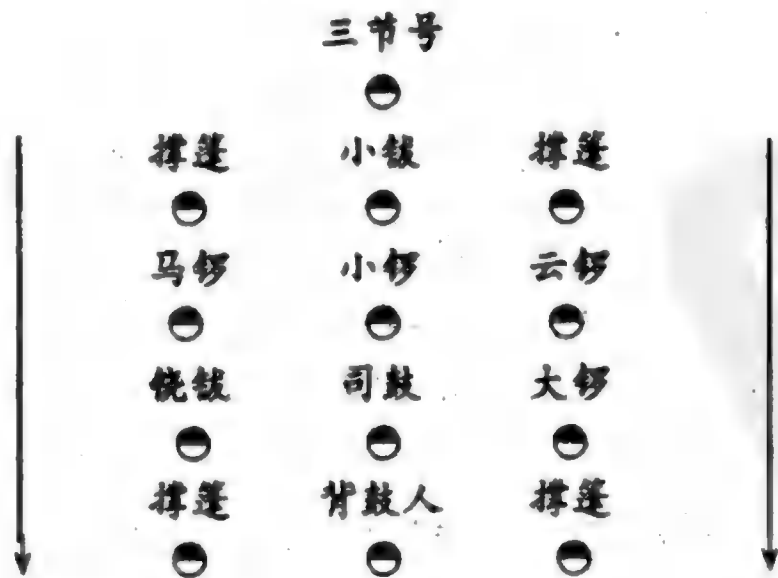 三节号
撑篷 小钹 撑篷
马锣 小锣 云锣
铙钹 司鼓 大锣
撑篷 背鼓人 撑篷